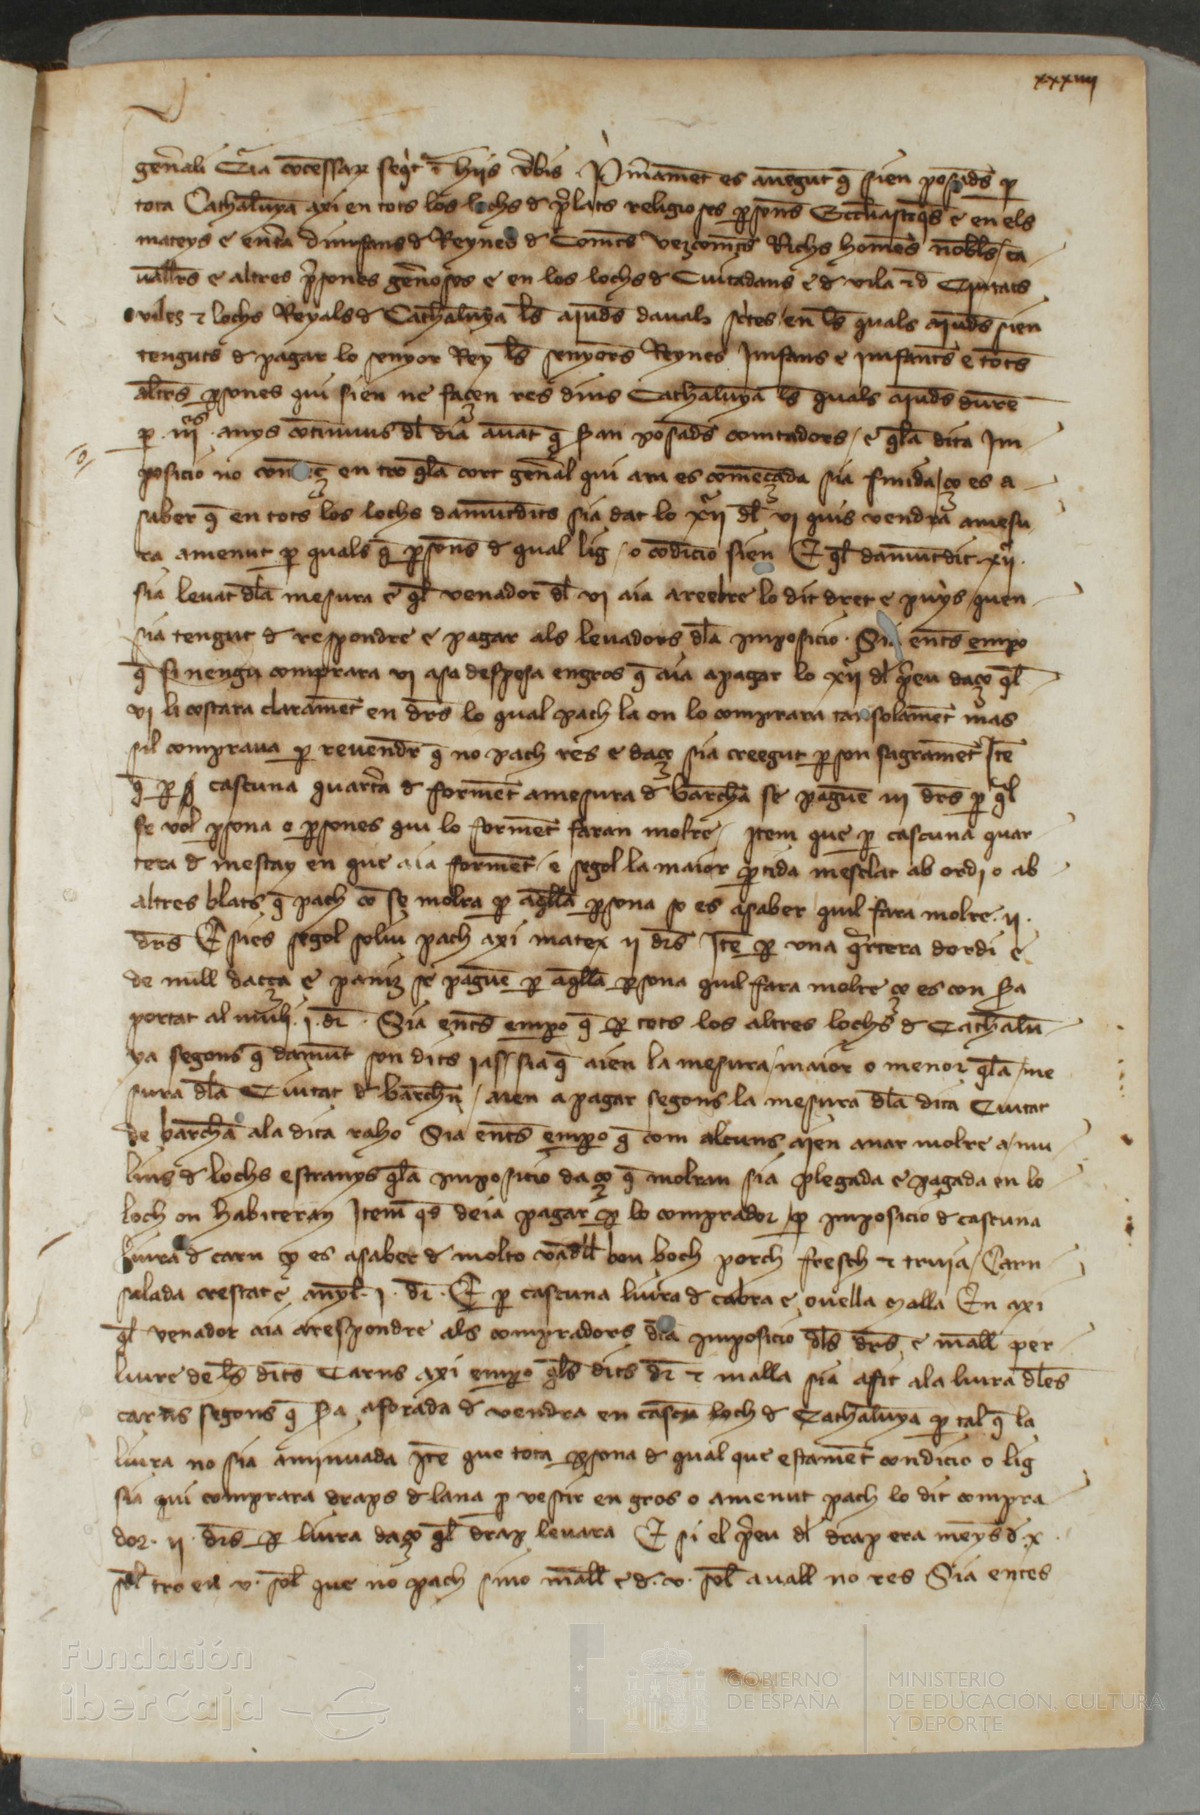 xxxiiij
gen̄ali Q̄ia cōcessar seq̄t̄ ī hijs v̄bis P̄mamēt es auēgut q̄ sien posads p̱
tota Cathaluȳa axi en tots los lochs d̄ p̄lats religioses p̱sons Eccliastiq̄s e en els
mateys e enc̄a dinfans d̄ Reynes d̄ Comts vezcomts Richs homēs nobls ca
uallrs e altres p̄sones gen̄oses e en los lochs d̄ Ciutadans e d̄ vila ⁊ d̄ Ciutats
viles ⁊ lochs Reyals d̄ Cathaluȳa ls aiuds dauall sc̄tes en ls quals aiuds sien
tenguts d̄ pagar lo senyor Rey ls senyors Reynes Jnfans e jnfants e tots
altrs p̱sones qui sien ne facen res dins Cathaluȳa ls quals aiuds durē
p̱ .iijs. anys cōtinuus dl dia auāt q̄ s̄an posads comtadors e q̄la dita Jm
posicio no en tro q̄la cort gen̄al qui ara es comēçada sia finida ço es a
saber q̄ en tots los lochs damutdits sia dat lo xij dl vi quis vendra amesu
ra amenut p̱ quals q̄ p̱sons d̄ qual lig o cōdicio sien E q̄l damutdit .xij.
sia leuat dla mesura e q̄l venador dl vi aia areebre lo dit dret e puys quen
sia tengut d̄ respondre e pagar als leuadors dla jmposicio . Sia ents emp̱o
q̄ si nengu comprara vi asa despesa engros q̄ aia apagar lo xij dl p̄eu daço q̄l
vi li costara claramēt en drs lo qual pach la on lo comprara tansolamēt mas
sil compraua p̱ reuendr q̄ no pach res e daço sia creegut p̱ son sagramēt Jtē
q̄ p̱ cascuna quart̄a d̄ formēt amesura d̄ barch̄a se paguē iij drs p̱ q̄l
se vol p̱sona o p̱sones qui lo formēt faran molre Jtem que p̱ cascuna quar
tera d̄ mestay en que aia formēt e segol la maior p̱tida mesclat ab ordi o ab
altres blats q̄ pach cō se molra p̱ aq̄lla p̱sona so es asaber quil fara molre .ij.
drs E si es segol soliu pach axi matex ij drs Jtē p̱ vna q̄rtera dordi e
de mill dacça e paniz se paguē p̱ aq̄lla p̱sona quil fara molre ço es con s̄a
portat al muli .j. dr . Sia ents emp̱o q̄ p̱ tots los altres lochs d̄ Cathalu
ya segons q̄ damūt son dits jas sia q̄ aien la mesura maior o menor q̄la me
sura dla Ciutat d̄ barchn̄ aien a pagar segons la mesura dla dita Ciutat
de barch̄a ala dita raho Sia ents emp̱o q̄ com alcuns aien anar molre a mu
lins d̄ lochs estranys q̄la jmposicio daço q̄ molran sia plegada e pagada en lo
loch on habiteran Jtem q̄s deia pagar p̱ lo comprador p̱ jmposicio d̄ cascuna
liura d̄ carn ço es asaber d̄ molto vadll bou boch porch fresch ⁊ truja Carn
salada crestat e anyl .j. dr . E p̱ cascuna liura d̄ cabra e ouella malla En axi
q̄l venador aia arespondre als compradors dla jmposicio dls drs e mall per
liure de ls dits Carns axi emp̱o q̄ls dits dr ⁊ malla sia afit ala liura dles
carns segons q̄ s̄a aforada d̄ vendra en cascū loch d̄ Cathaluȳa p̱ tal q̄ la
liura no sia aminuada Jtē que tota p̱sona d̄ qual que estamēt condicio o lig
sia qui comprara draps d̄ lana p̱ vestir en gros o amenut pach lo dit compra
dor .ij. drs p̱ liura daço q̄l drap leuara E si el p̄eu dl drap era meys d̄ .x.
sol tro en .v. sol que no pach sino mall e d̄ .v. sol auall no res Sia entes
Fundación
iberCaja
GOBIERNO
DE ESPAÑA
MINISTERIO
DE EDUCACIÓN, CULTURA
Y DEPORTE